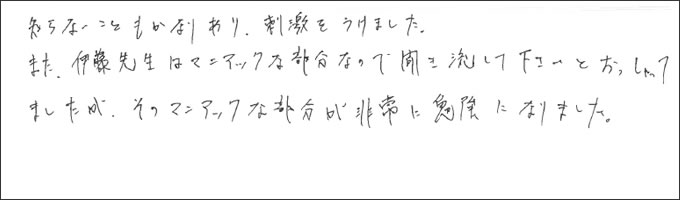 知らないこともかなりあり、刺激をうけました。
また、伊藤先生はマニアックな部分なので聞き流して下さいとおっしゃって
ましたが、そのマニアックな部分が非常に勉強になりました。